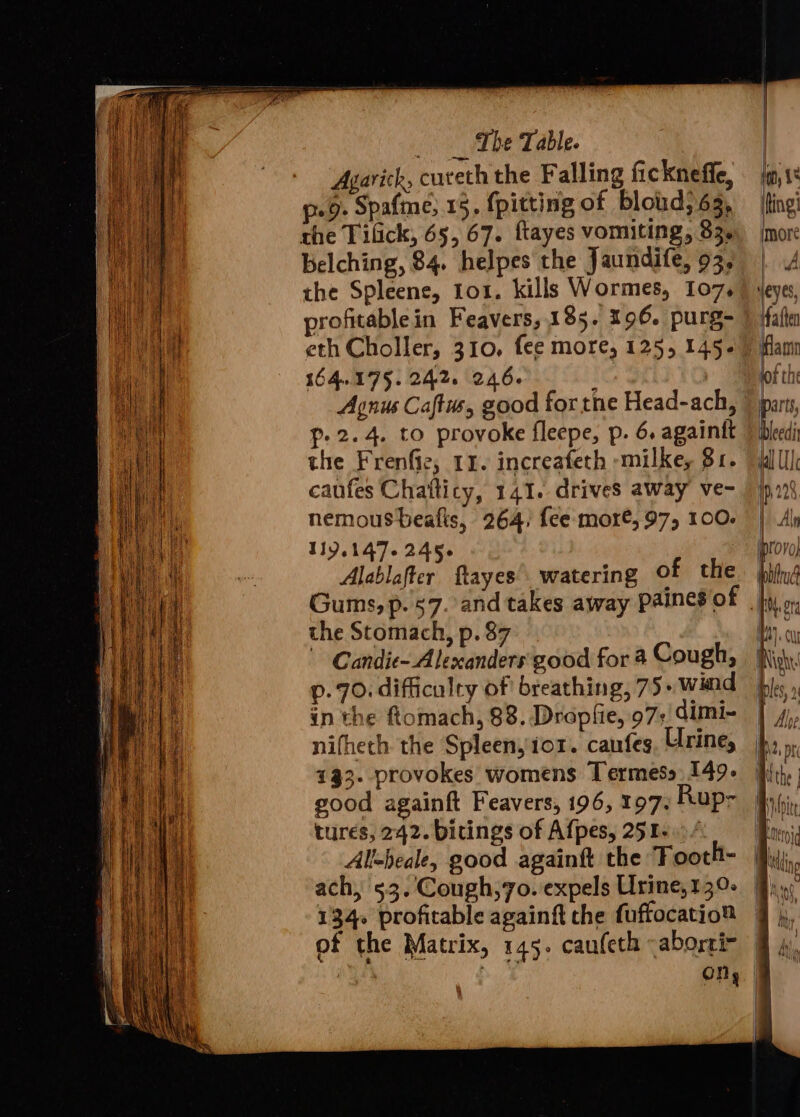 The Table.
Agarick, cureth the Falling ſickneſſe,
p.9. Spaſme, 15. ſpitting of bloud, 63,
the Tiſick, 65, 67. ſtayes vomiting, 83.
belching, 84. helpes the Jaundiſe, 93,
the Spleene, 101. kills Wormes, 107.
profitable in Feavers, 185. 196. purg-
eth Choller, 310. ſee more, 125, 145.
164.175. 242. 246.
Agnus Caſtus, good for the Head-ach,
p.2.4. to provoke ſleepe, p. 6. againſt
the Frenſie, 11. increaſeth milke, 81.
cauſes Chaſticy, 141. drives away ve-
nemous beaſts, 264, ſee more, 97, 100.
119.147. 245.
Alablaſter ſtayes watering of the
Gums, p. 57. and takes away paines of
the Stomach, p. 87
Candie-Alexanders good for a Cough,
p.70. difficulty of breathing, 75. wind
in the ſtomach, 88. Dropſie, 97, dimi-
niſheth the Spleen, 101. cauſes Urine,
133. provokes womens Termes, 149.
good againſt Feavers, 196, 197. Rup-
tures, 242. bitings of Aſpes, 251.
All-heale, good againſt the Tooth-
ach, 53. Cough, 70. expels Urine, 130.
134. profitable againſt the ſuffocation
of the Matrix, 145. cauſeth aborti-
on,